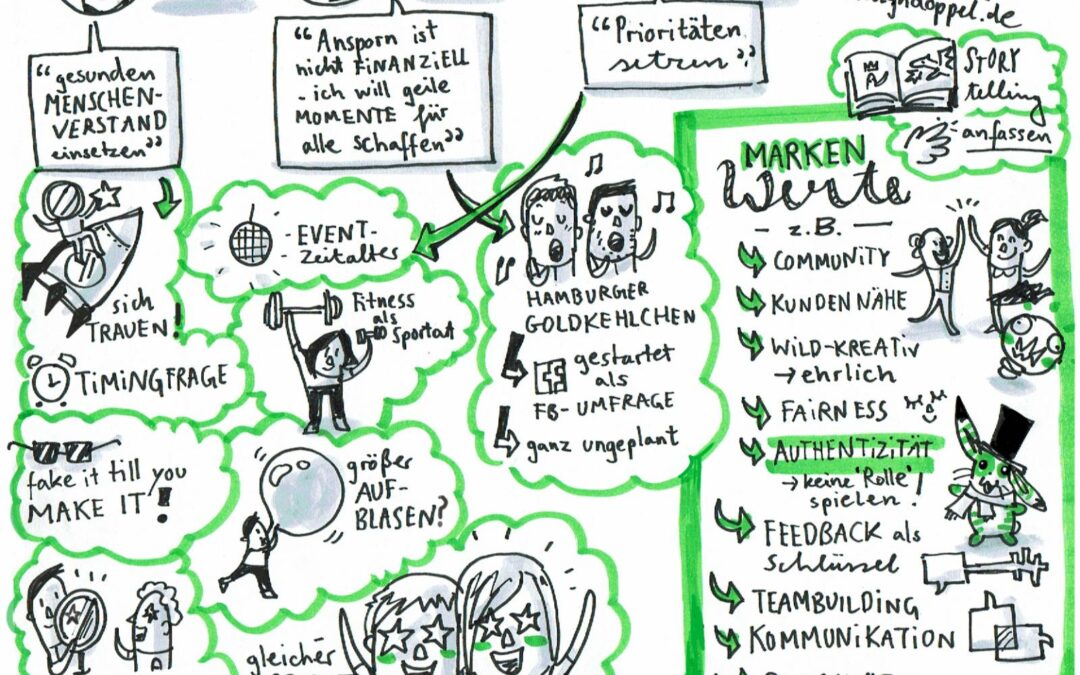 “gesunden
MENSCHEN-
VERSTAND
einsetzen”
“Ansporn ist
nicht FINANZIELL
- ich will geile
MOMENTE für
alle schaffen”
“Prioritäten
setzen”
doppel.de
STORY
telling
anfassen
sich
TRAUEN!
TIMINGFRAGE
fake it till you
MAKE IT!
- EVENT-
- Zeitalter
Fitness
als
Sportart
größer
AUF-
BLASEN?
gleicher
HAMBURGER
GOLDKEHLCHEN
gestartet
als
FB-UMFRAGE
ganz ungeplant
MARKEN
Werte
- z.B. -
COMMUNITY
KUNDENNÄHE
WILD-KREATIV
→ ehrlich
FAIRNESS
AUTHENTIZITÄT
→ keine 'Rolle'
spielen!
FEEDBACK als
Schlüssel
TEAMBUILDING
KOMMUNIKATION